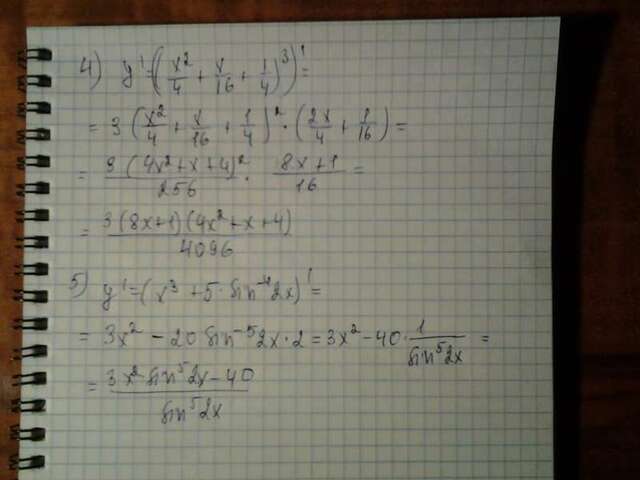 4) y' = (x²/4 + x/16 + 1/4)³)' =
= 3 (x²/4 + x/16 + 1/4)² · (2x/4 + 1/16) =
= 3 (4x² + x + 4)²/256 · 8x + 1/16 =
= 3 (8x + 1) (4x² + x + 4)/4096
5) y' = (x³ + 5 · sin⁻⁴2x)' =
= 3x² - 20 sin⁻⁵2x · 2 = 3x² - 40 · 1/sin⁵2x =
= 3x² sin⁵2x - 40/sin⁵2x